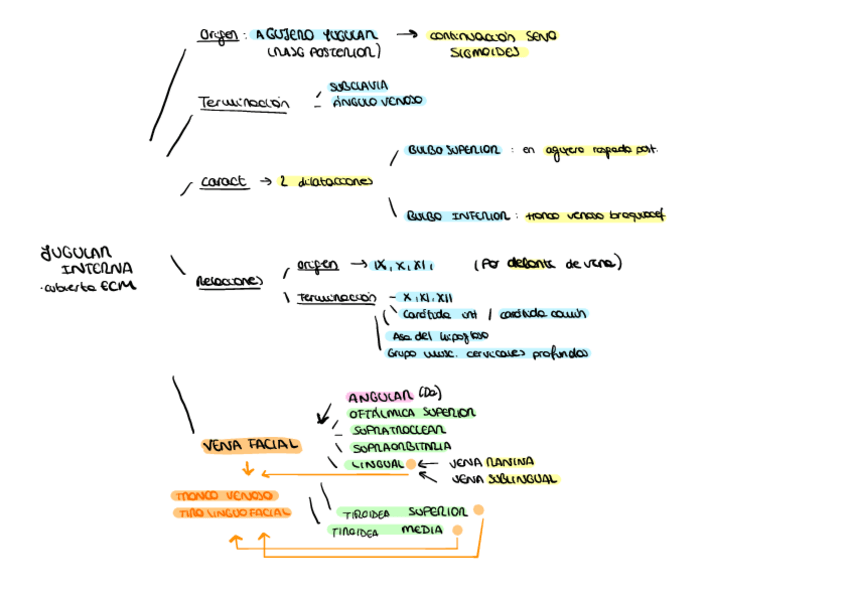 Origen: AGUJERO YUGULAR → continuación SENO
(RASG POSTERIOR) SIGMOIDES
Terminación SUBCLAVIA
- ÁNGULO VENOSO
BULBO SUPERIOR: en agujero rasgado post.
caract → 2 dilataciones
BULBO INFERIOR: tronco venoso braquicef
YUGULAR
INTERNA
· cubierta ECM
Relaciones
origen → IX, X, XI, (Por delante de vena)
Terminación - X, XI, XII
Carótida int / carótida común
Asa del hipogloso
Grupo musc. cervicales profundos
ANGULAR (Da)
OFTÁLMICA SUPERIOR
SUPRATROCLEAR
VENA FACIAL
SUPRAORBITARIA
LINGUAL ← VENA RANINA
VENA SUBLINGUAL
TRONCO VENOSO
TIROLINGUOFACIAL
TIROIDEA SUPERIOR
TIROIDEA MEDIA